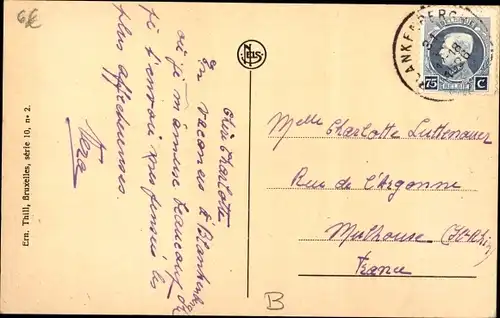 6€
Chère Charlotte
En vacances à Blankenberge
où je m'amuse beaucoup
je t'envoie mes pensées les
plus affectueuses.
Vera
Ern. Thill, Bruxelles, série 10, n° 2.
NELS
BLANKENBERGE
BELGIE
75 C
Melle Charlotte Luttenauer
Rue de l'Argonne
Mulhouse (Ht Rhin)
France
B